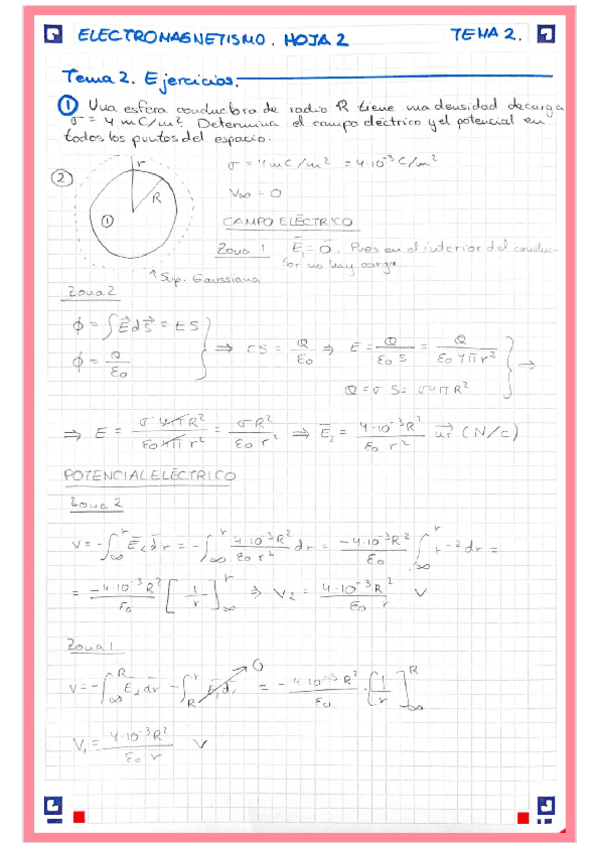 ELECTROMAGNETISMO. HOJA 2 TEMA 2.
Tema 2. Ejercicios.
① Una esfera conductora de radio R tiene una densidad de carga
σ = 4 mC/m². Determina el campo eléctrico y el potencial en
todos los puntos del espacio.
σ = 4 mC/m² = 4·10⁻³ C/m²
②
r
R
①
V∞ = 0
CAMPO ELÉCTRICO
Zona 1 E⃗₁ = 0⃗. Pues en el interior del conduc-
tor no hay carga.
↑ Sup. Gaussiana
Zona 2
ϕ = ∫E⃗dS⃗ = ES
ϕ = Q/ε₀
⇒ ES = Q/ε₀ ⇒ E = Q/(ε₀ S) = Q/(ε₀ 4π r²)
Q = σ S = σ4πR²
⇒ E = σ 4πR²/(ε₀ 4π r²) = σR²/(ε₀ r²) ⇒ E⃗₂ = 4·10⁻³R²/(ε₀ r²) u⃗r (N/C)
POTENCIAL ELÉCTRICO
Zona 2
V = -∫∞^r E⃗₂ d⃗r = -∫∞^r 4·10⁻³R²/(ε₀ r²) dr = -4·10⁻³R²/ε₀ ∫∞^r r⁻² dr =
= -4·10⁻³R²/ε₀ [1/r]∞^r ⇒ V₂ = 4·10⁻³R²/(ε₀ r) V
Zona 1
V = -∫∞^R E⃗₂ d⃗r - ∫R^r E⃗₁ d⃗r 0 = -4·10⁻³R²/ε₀ · [1/r]∞^R
V₁ = 4·10⁻³R²/(ε₀ r) V